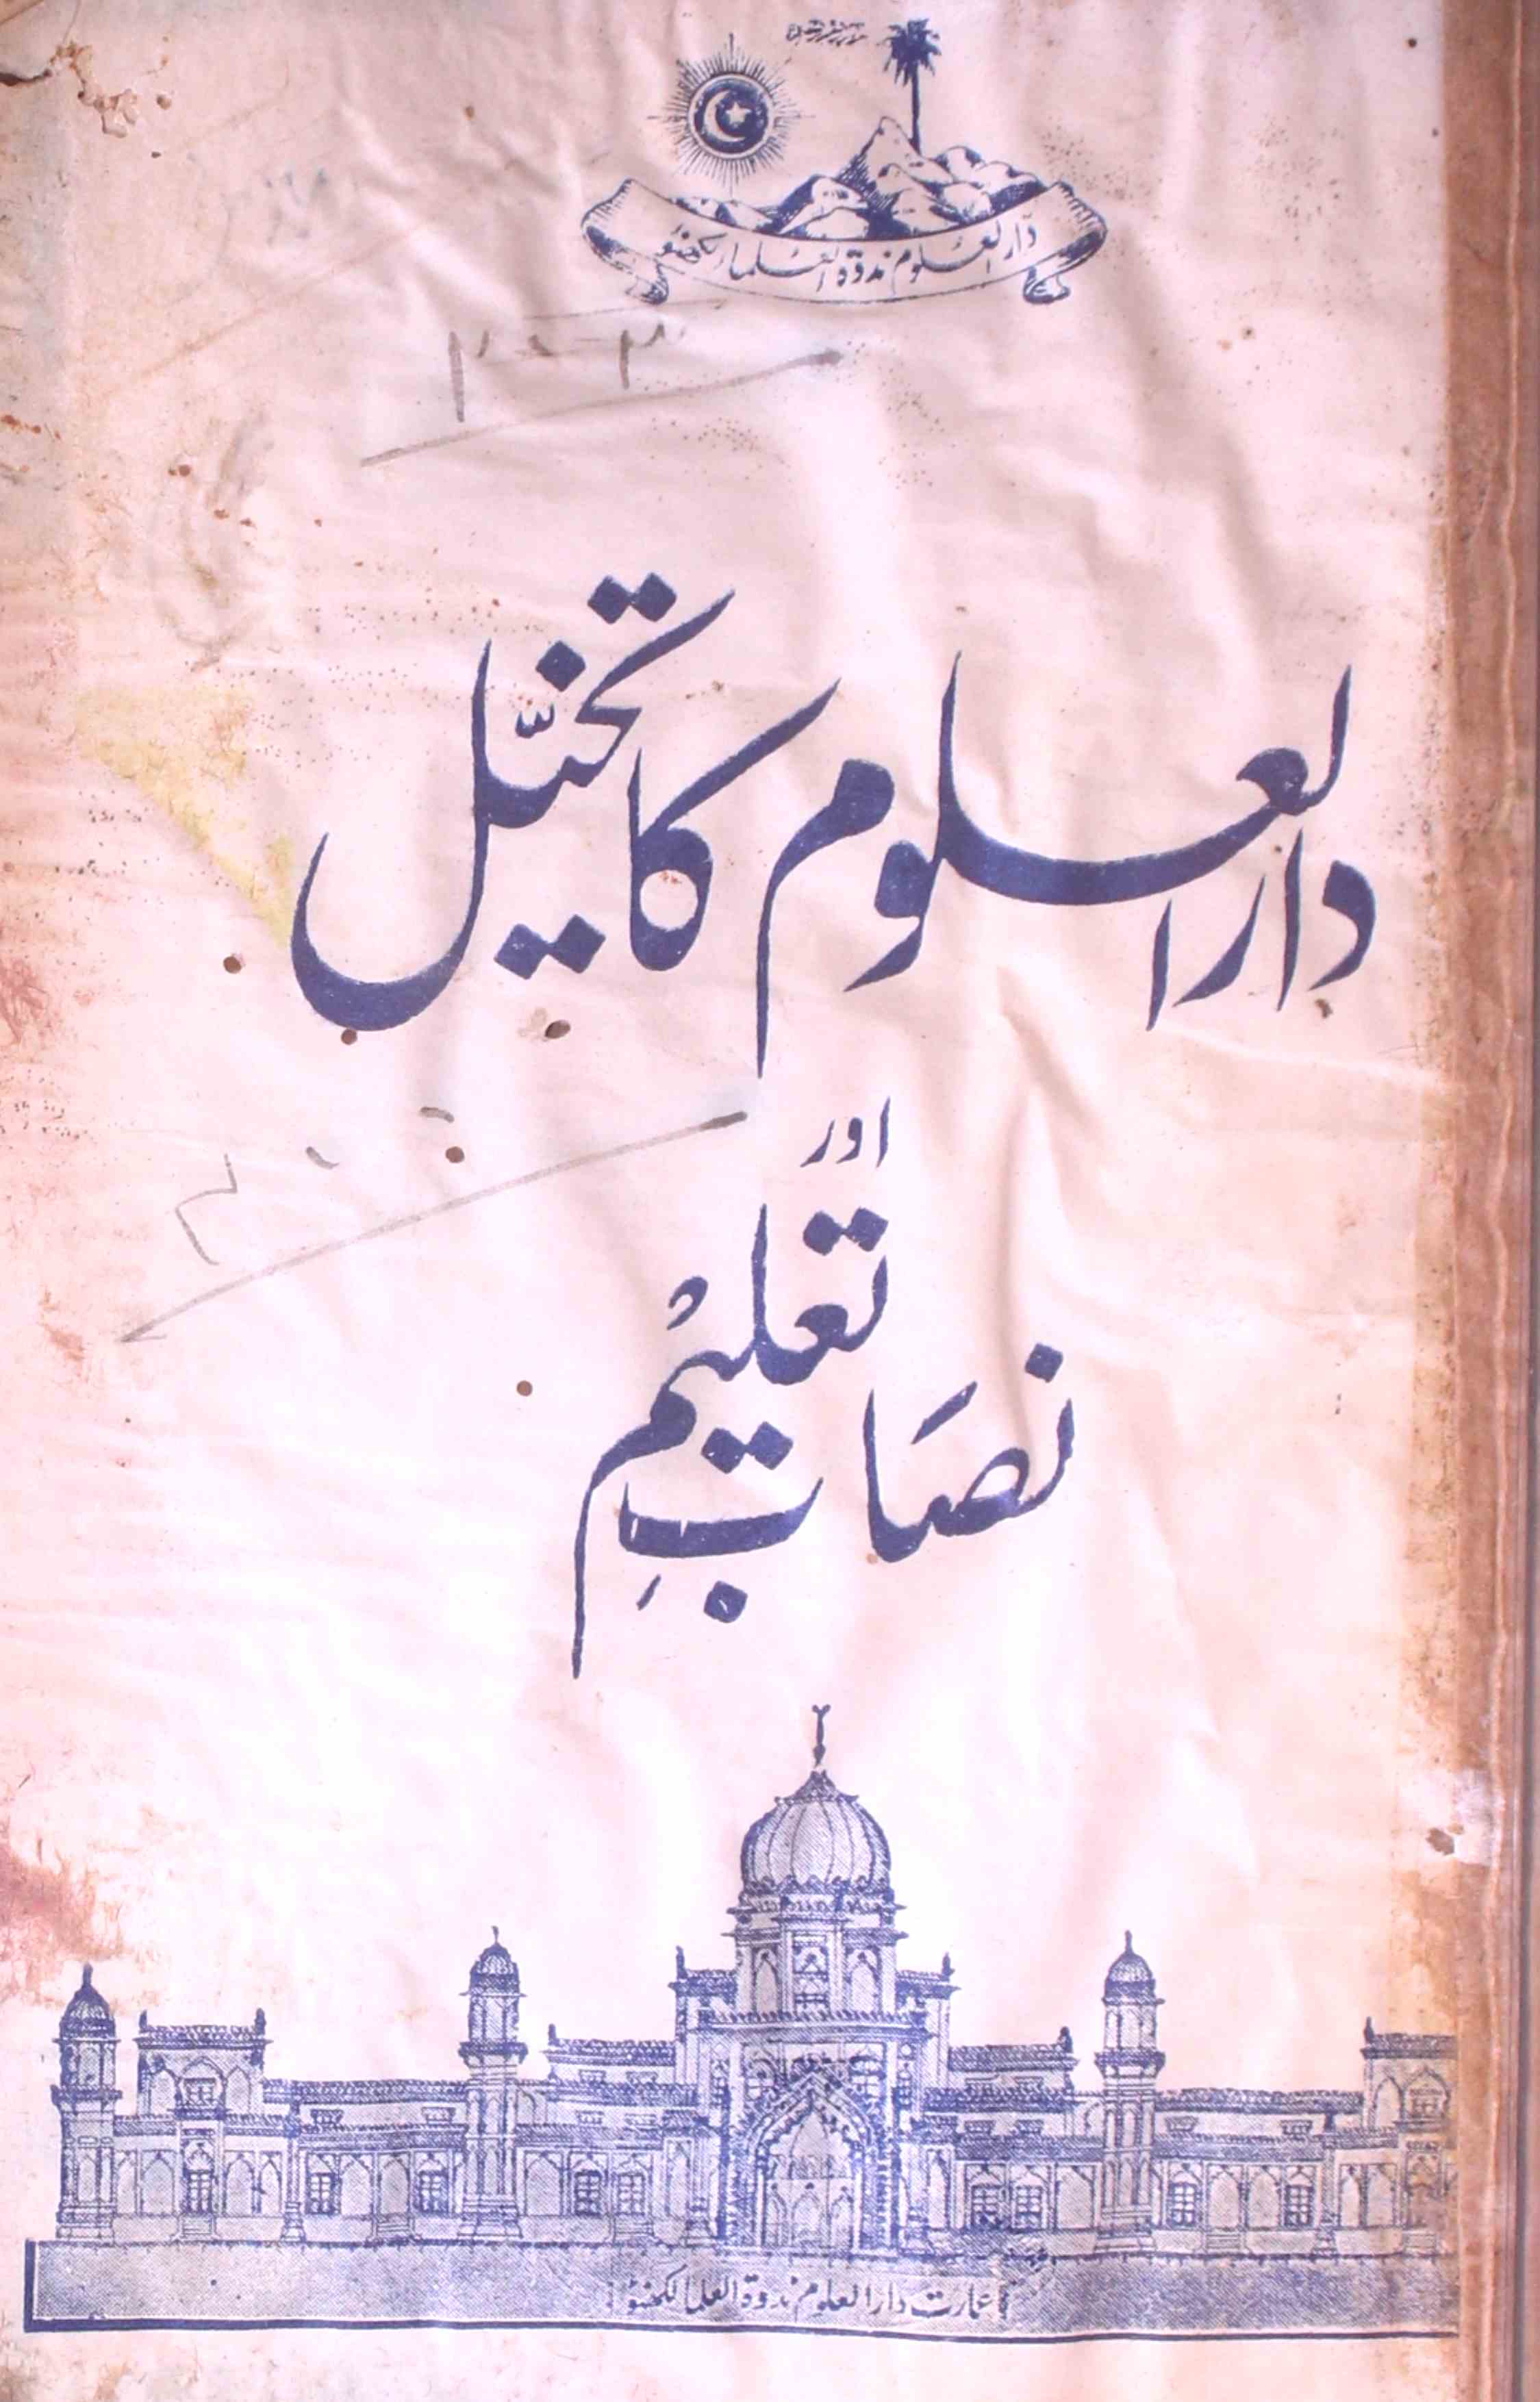 دارالعلوم ندوۃ العلماء لکھنؤ
دارالعلوم کا تخیّل
اور
نصَابِ تعلیمْ
عمارت دارالعلوم ندوۃ العلما لکھنؤ